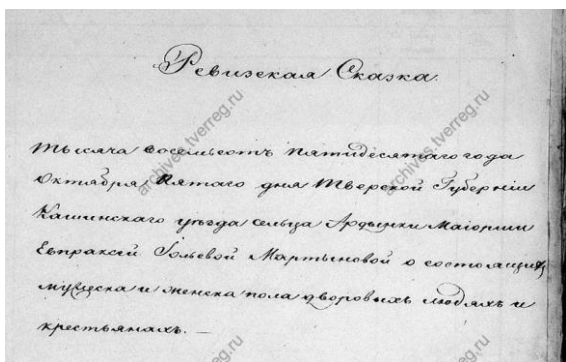 Ревизская Сказка.
тысяча восемьсотъ пятидесятаго года
Октября Пятаго дня Тверской Губерніи
Кашинскаго уѣзда сельца Ардынки Маіорши
Евпраксіи Мартыновой о состоящихъ
мужеска и женска пола дворовыхъ людяхъ и
крестьянахъ. —
archives.tverreg.ru
archives.tverreg.ru
archives.tverreg.ru